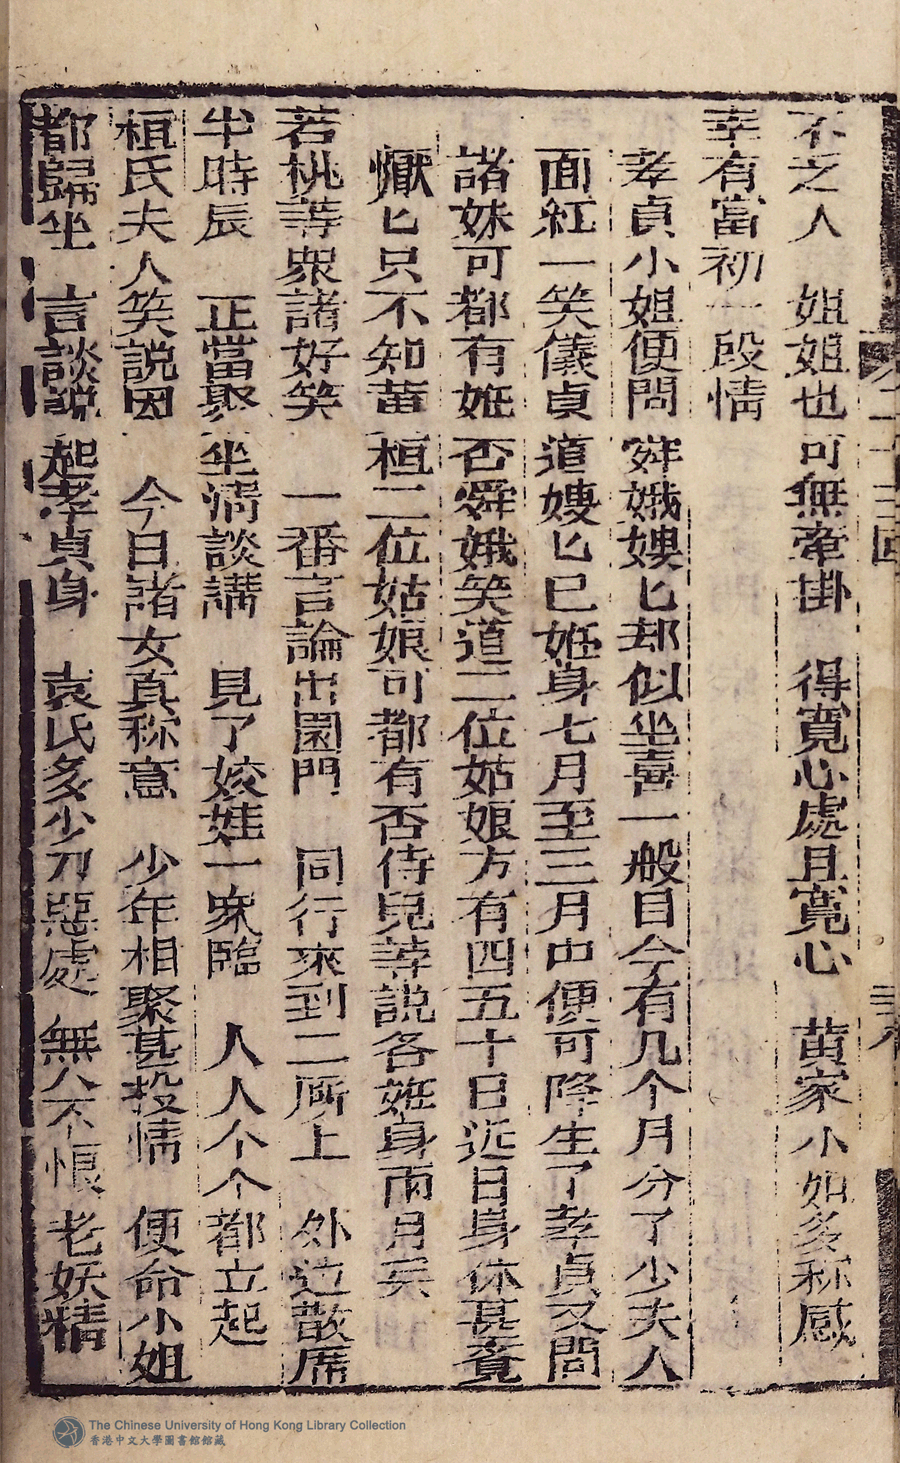 不乏人　姐姐也可無牽掛　得寬心處且寬心　黄家小姐多称感
幸有當初一段情
孝貞小姐便問舜娥嫂匕却似坐喜一般目今有几个月分了少夫人
面紅一笑儀貞道嫂匕已姙身七月至三月中便可降生了孝貞又問
諸妹可都有姙否舜娥笑道二位姑娘方有四五十日近日身体甚覺
懨匕只不知黄桓二位姑娘可都有否侍兒等説各姙身兩月矣
若桃等衆諸好笑　一番言論出園門　同行來到二厛上　外边散席
半時辰　正當聚坐清談講　見了姣娃一衆臨　人人个个都立起
桓氏夫人笑說因　今日諸女真称意　少年相聚甚投情　便命小姐
都歸坐　言談説起孝貞身　袁氏多少刁惡處　無人不恨老妖精
卷二十三回
The Chinese University of Hong Kong Library Collection
香港中文大學圖書館館藏